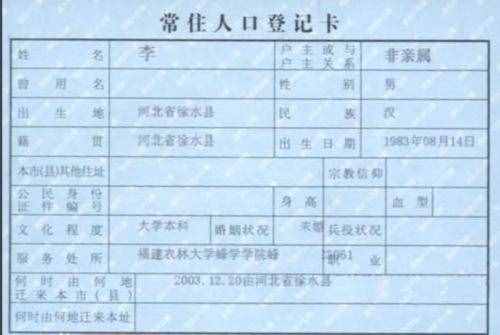 常住人口登记卡
姓名 李 户主或与户主关系 非亲属
曾用名 性别 男
出生地 河北省徐水县 民族 汉
籍贯 河北省徐水县 出生日期 1983年08月14日
本市(县)其他住址 宗教信仰
公民身份证件编号 身高 血型
文化程度 大学本科 婚姻状况 未婚 兵役状况
服务处所 福建农林大学蜂学学院蜂 职业
何时由何地迁来本市(县) 2003.12.20由河北省徐水县
何时由何地迁来本址